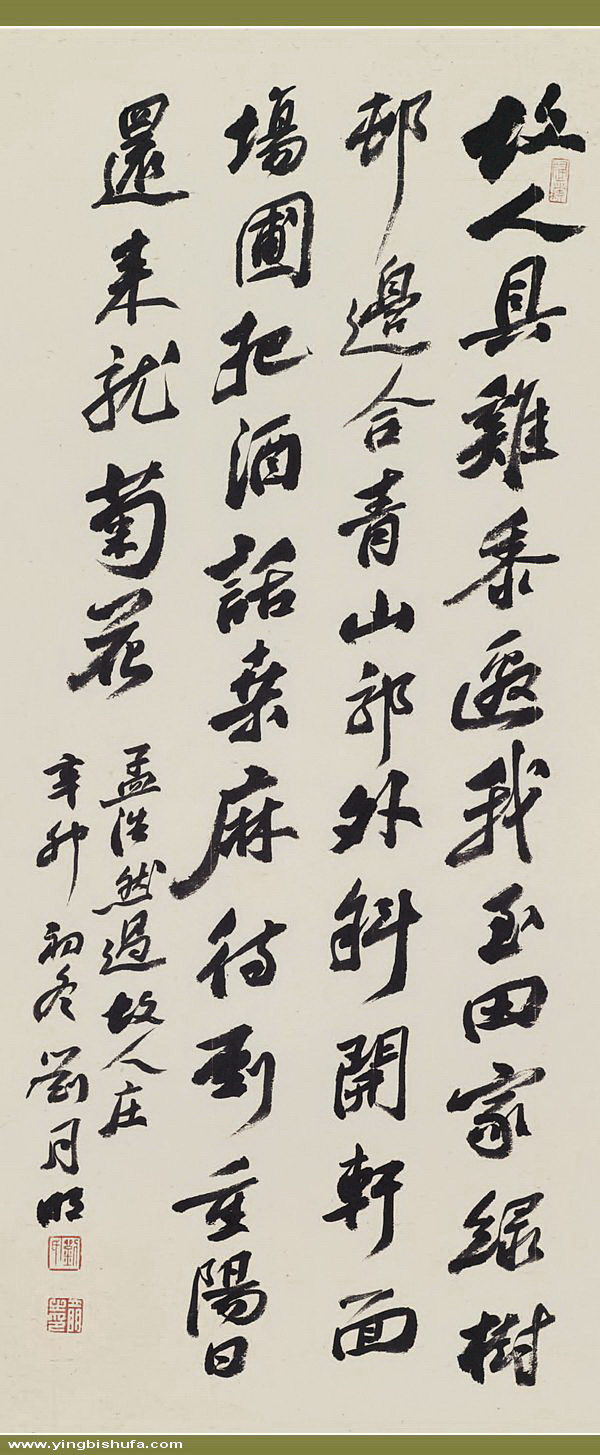 故人具雞黍邀我至田家綠樹
邨邊合青山郭外斜開軒面
場圃把酒話桑麻待到重陽日
還来就菊花
孟浩然過故人庄
辛卯初冬劉月明
www.yingbishufa.com